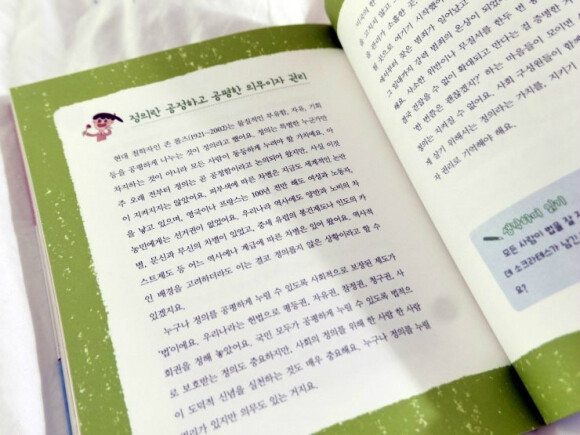 정의란 공정하고 공평한 의무이자 권리
현대 철학자인 존 롤즈(1921~2002)는 물질적인 부유함, 자유, 기회
등을 공평하게 나누는 것이 정의라고 했어요. 정의는 특별한 누군가만
차지하는 것이 아니라 모든 사람이 동등하게 누려야 할 가치예요. 아
주 오래 전부터 정의는 곧 공정함이라고 논의되어 왔지만, 사실 이것
이 지켜지지는 않았어요. 피부색에 따른 차별은 지금도 세계적인 논란
을 낳고 있으며, 영국이나 프랑스는 100년 전만 해도 여성과 노동자,
농민에게는 선거권이 없었어요. 우리나라 역사에도 양반과 노비의 차
별, 문신과 무신의 차별이 있었고, 중세 유럽의 봉건제도나 인도의 카
스트제도 등 어느 역사에나 계급에 따른 차별은 있어 왔어요. 역사적
인 배경을 고려하더라도 이는 결코 정의롭지 않은 상황이라고 할 수
있겠지요.
누구나 정의를 공평하게 누릴 수 있도록 사회적으로 보장된 제도가
'법'이에요. 우리나라는 헌법으로 평등권, 자유권, 참정권, 청구권, 사
회권을 정해 놓았어요. 국민 모두가 공평하게 누릴 수 있도록 법적으
로 보호받는 정의도 중요하지만, 사회의 정의를 위해 한 사람 한 사람
이 도덕적 신념을 실천하는 것도 매우 중요해요. 누구나 정의를 누릴
권리가 있지만 의무도 있는 거지요.
정의는 지켜질 수 없어요. 사회 구성원들이 함께
게 살기 위해서는 정의라는 가치를, 지키기
자 권리로 기억해야 해요.
모든 사람이 법을 잘
데 소크라테스가 남긴
요?